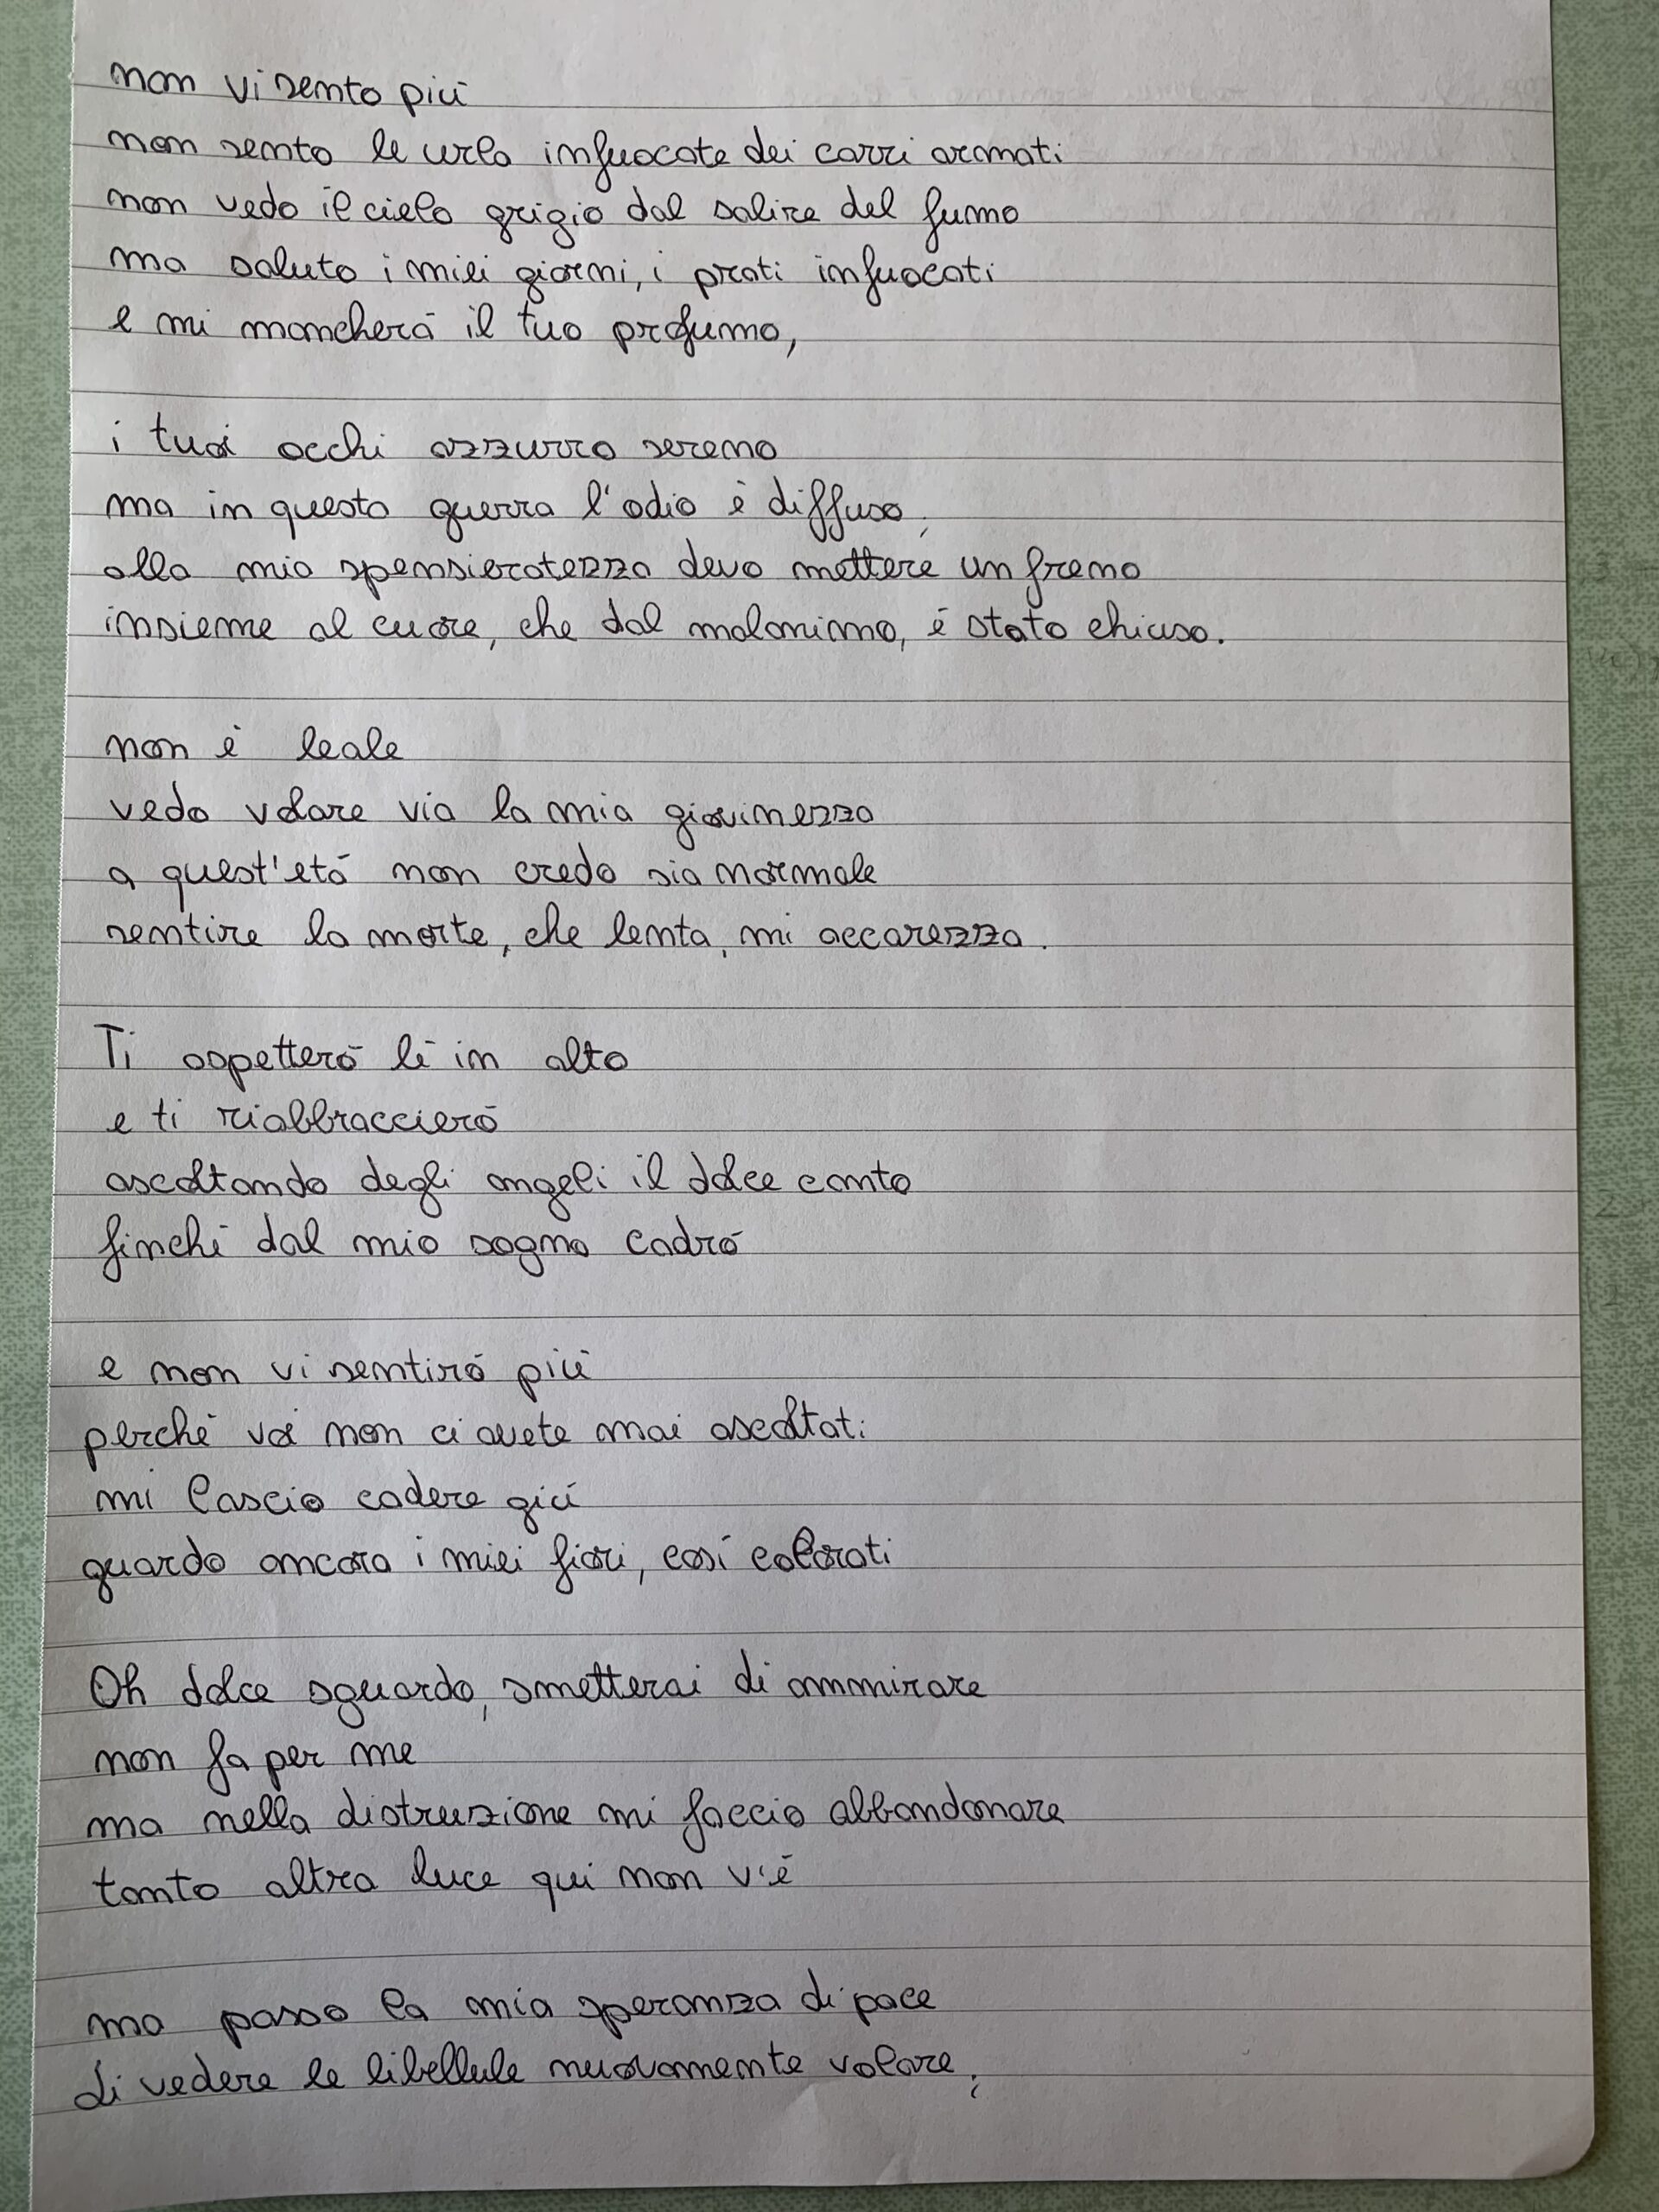 non vi sento più
non sento le urla infuocate dei carri armati
non vedo il cielo grigio dal salire del fumo
ma saluto i miei giorni, i prati infuocati
e mi mancherà il tuo profumo,
i tuoi occhi azzurro sereno
ma in questa guerra l'odio è diffuso,
alla mia spensieratezza devo mettere un freno
insieme al cuore, che dal malanimo, è stato chiuso.
non è leale
vedo volare via la mia giovinezza
a quest'età non credo sia normale
sentire la morte, che lenta, mi accarezza.
Ti aspetterò lì in alto
e ti riabbraccierò
ascoltando degli angeli il dolce canto
finché dal mio sogno cadrò
e non vi sentirò più
perché voi non ci avete mai ascoltati
mi lascio cadere giù
guardo ancora i miei fiori, così colorati
Oh dolce sguardo, smetterai di ammirare
non fa per me
ma nella distruzione mi faccio abbandonare
tanto altra luce qui non v'è
ma passo la mia speranza di pace
di vedere le libellule nuovamente volare;